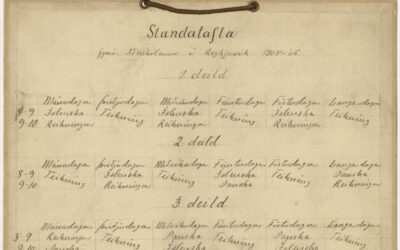 Stundatafla
fyrir Iðnskólann í Reykjavík 1904-05
1. deild
Mánudaga þriðjudaga Miðvikudaga Fimtudaga Föstudaga Laugardaga
8-9 Íslenska Teikning Íslenska Teikning Íslenska Teikning
9-10 Reikningur Reikningur Reikningur
2. deild
Mánudaga þriðjudaga Miðvikudaga Fimtudaga Föstudaga Laugardaga
8-9 Teikning Íslenska Teikning Íslenska Teikning Danska
9-10 Reikningur Danska Reikningur
3. deild
Mánudaga þriðjudaga Miðvikudaga Fimtudaga Föstudaga Laugardaga
8-9 Reikningur Teikning Danska Teikning Danska Teikning
9-10 Íslenska Íslenska